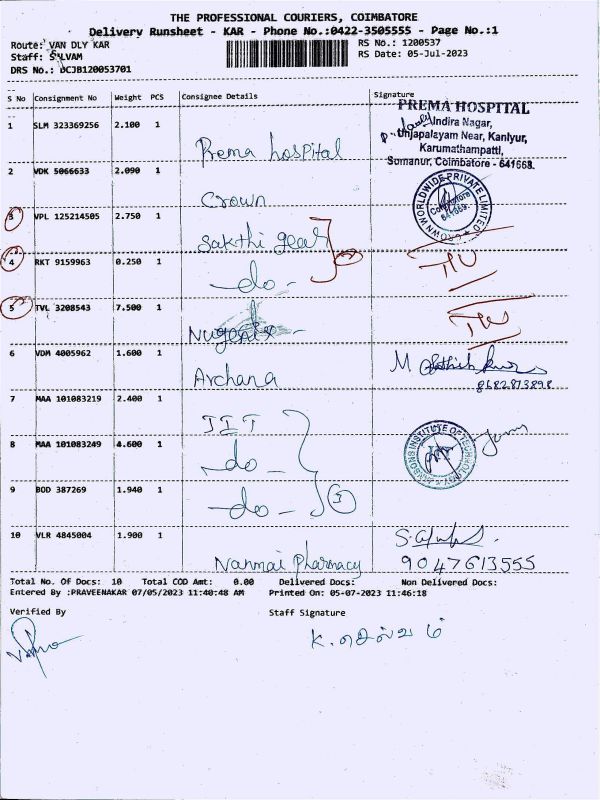 THE PROFESSIONAL COURIERS, COIMBATORE
Delivery Runsheet - KAR - Phone No.:0422-3505555 - Page No.:1
Route: VAN DLY KAR
RS No.: 1200537
Staff: SELVAM
RS Date: 05-Jul-2023
DRS No.: DCJB120053701
S No Consignment No Weight PCS Consignee Details Signature
PREMA HOSPITAL
Indira Nagar,
Unjapalayam Near, Kaniyur,
Karumathampatti,
Sumanur, Coimbatore - 641668.
1 SLM 323369256 2.100 1
Prema hospital
2 VDK 5066633 2.090 1
Crown
CROWN WORLDWIDE PRIVATE LIMITED
Coimbatore
3 VPL 125214505 2.750 1
Sakthi gear
4 RKT 9159963 0.250 1
-do-
5 TVL 3208543 7.500 1
6 VDM 4005962 1.600 1
Archana
M Sathish
8682873898
7 MAA 101083219 2.400 1
JIT
8 MAA 101083249 4.600 1
-do-
9 BOD 387269 1.940 1
-do- 3
JANSONS INSTITUTE OF TECHNOLOGY
JIT
10 VLR 4845004 1.900 1
Nanmai Pharmacy
9047613555
Total No. Of Docs: 10 Total COD Amt: 0.00 Delivered Docs: Non Delivered Docs:
Entered By :PRAVEENAKAR 07/05/2023 11:40:48 AM Printed On: 05-07-2023 11:46:18
Verified By Staff Signature
K. செல்வம்